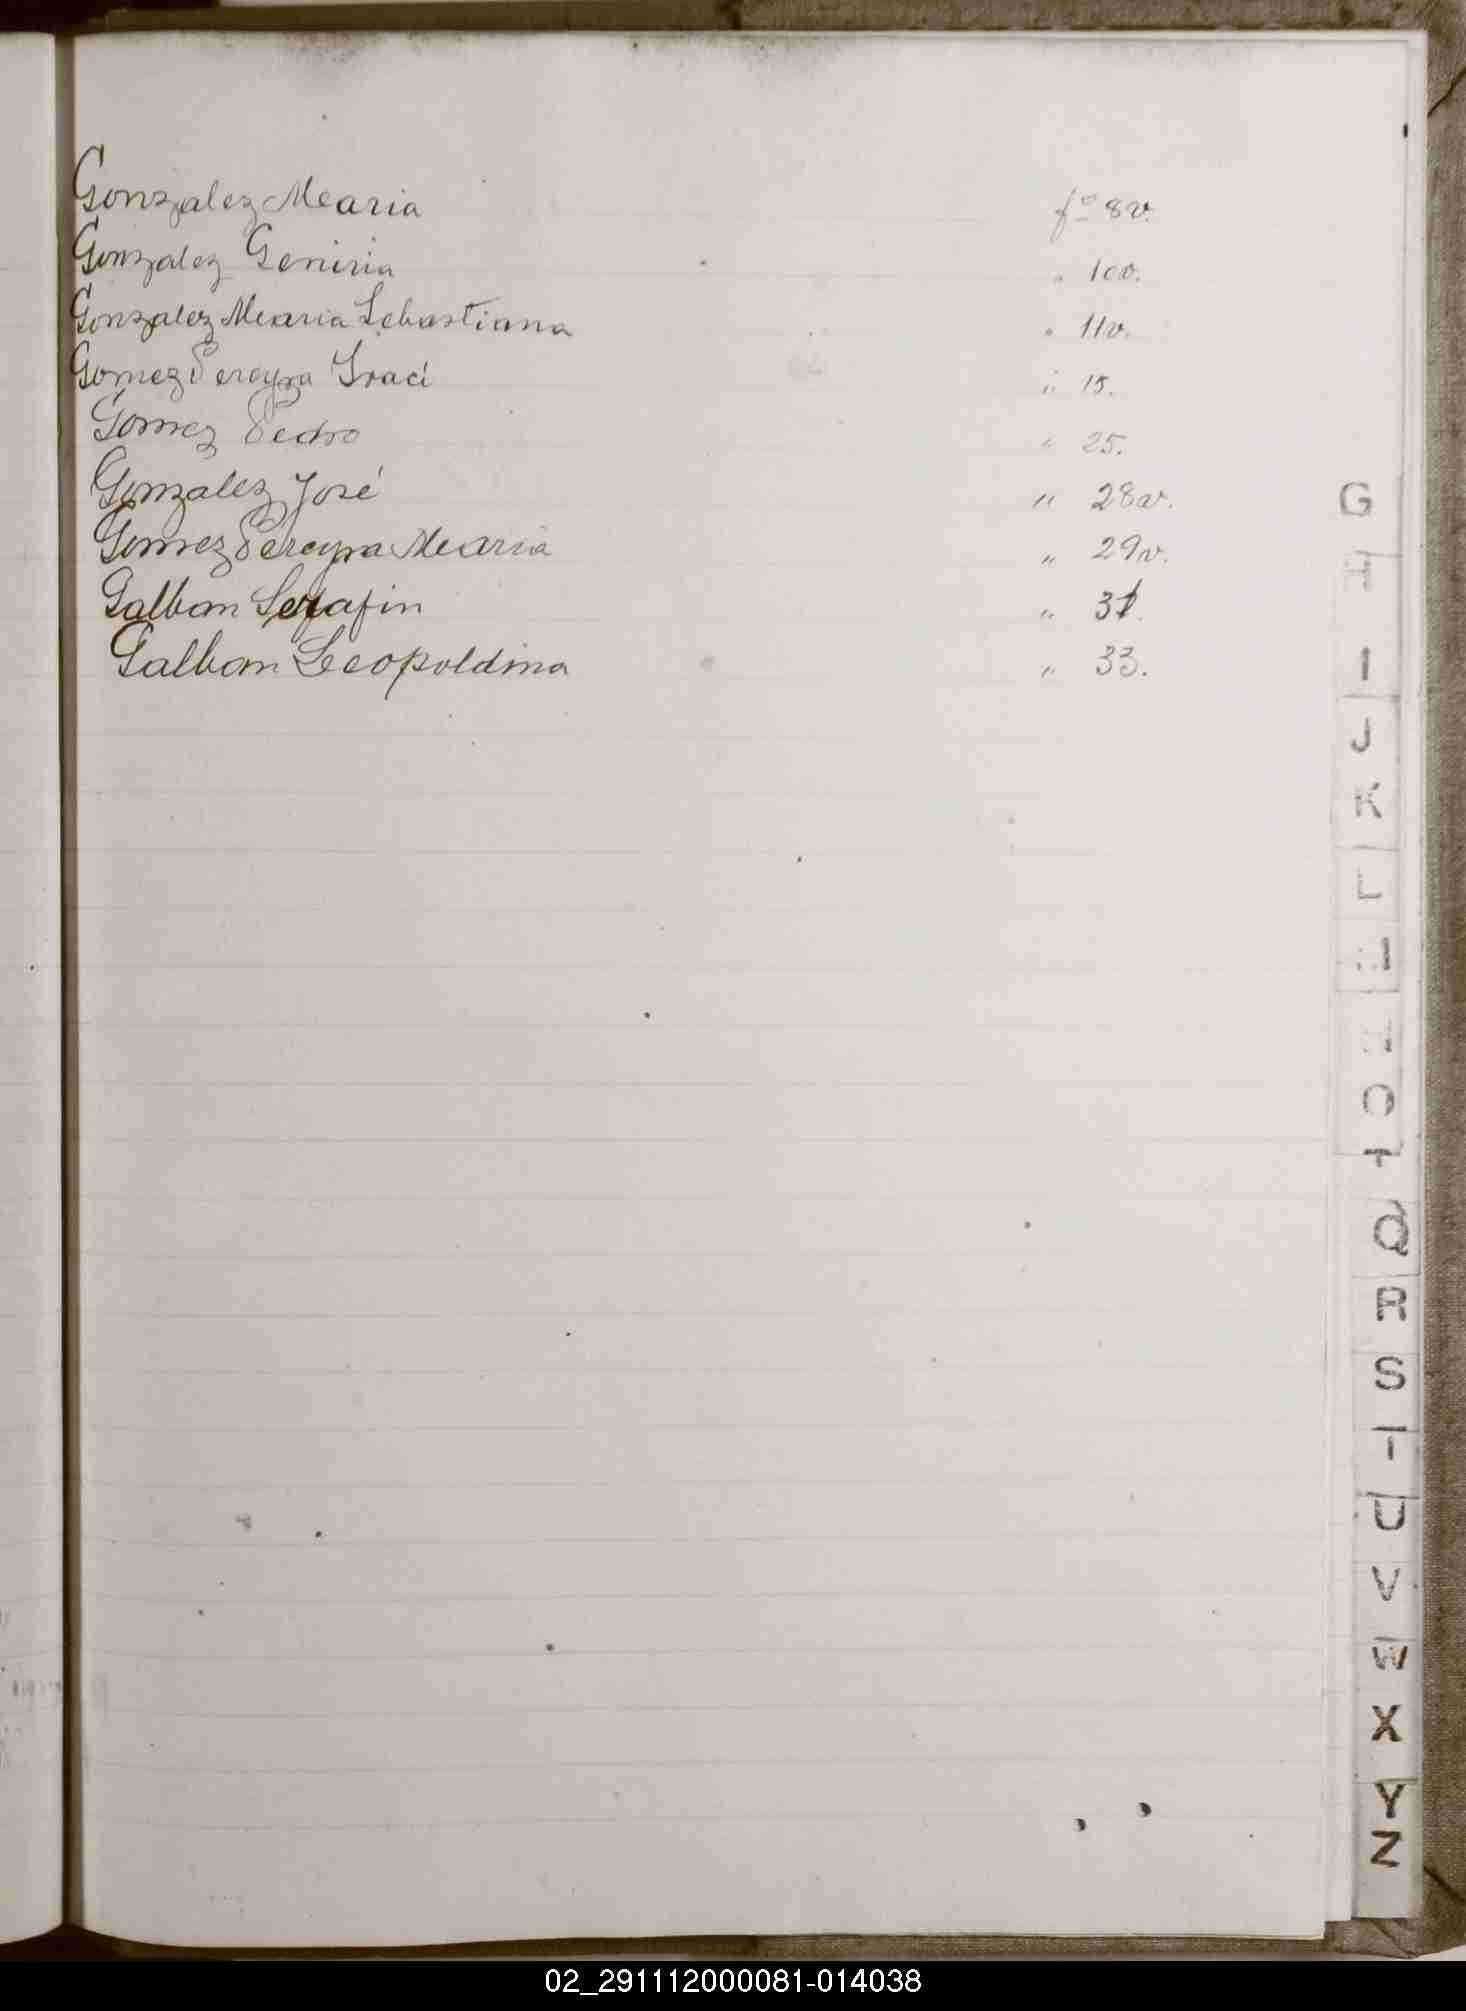 Gonzalez Maria fo 8v.
Gonzalez Geniria " 10v.
Gonzalez Maria Sebastiana " 11v.
Gomez Pereyra Iraci " 15.
Gomez Pedro " 25.
Gonzalez José " 28v.
Gomez Pereyra Maria " 29v.
Galban Serafin " 31.
Galban Leopoldina " 33.
G
H
I
J
K
L
O
Q
R
S
T
U
V
W
X
Y
Z
02_291112000081-014038